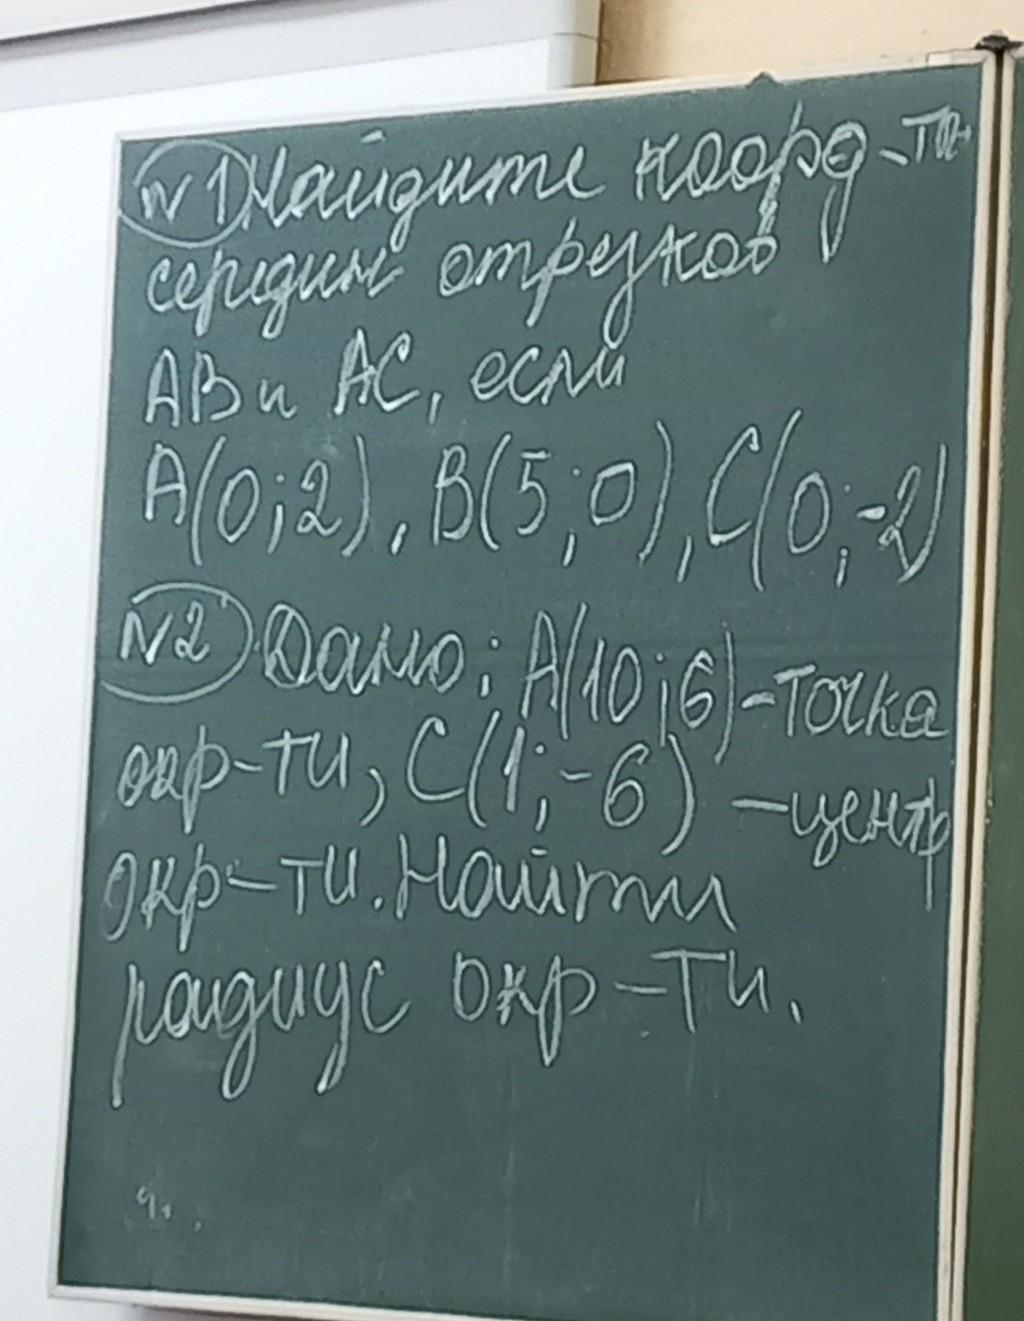 №1 Найдите коорд-ты
середин отрезков
АВ и АС, если
А(0;2), В(5;0), С(0;-2)
№2 Дано: А(10;6)-точка
окр-ти, С(1;-6) -центр
окр-ти. Найти
радиус окр-ти.